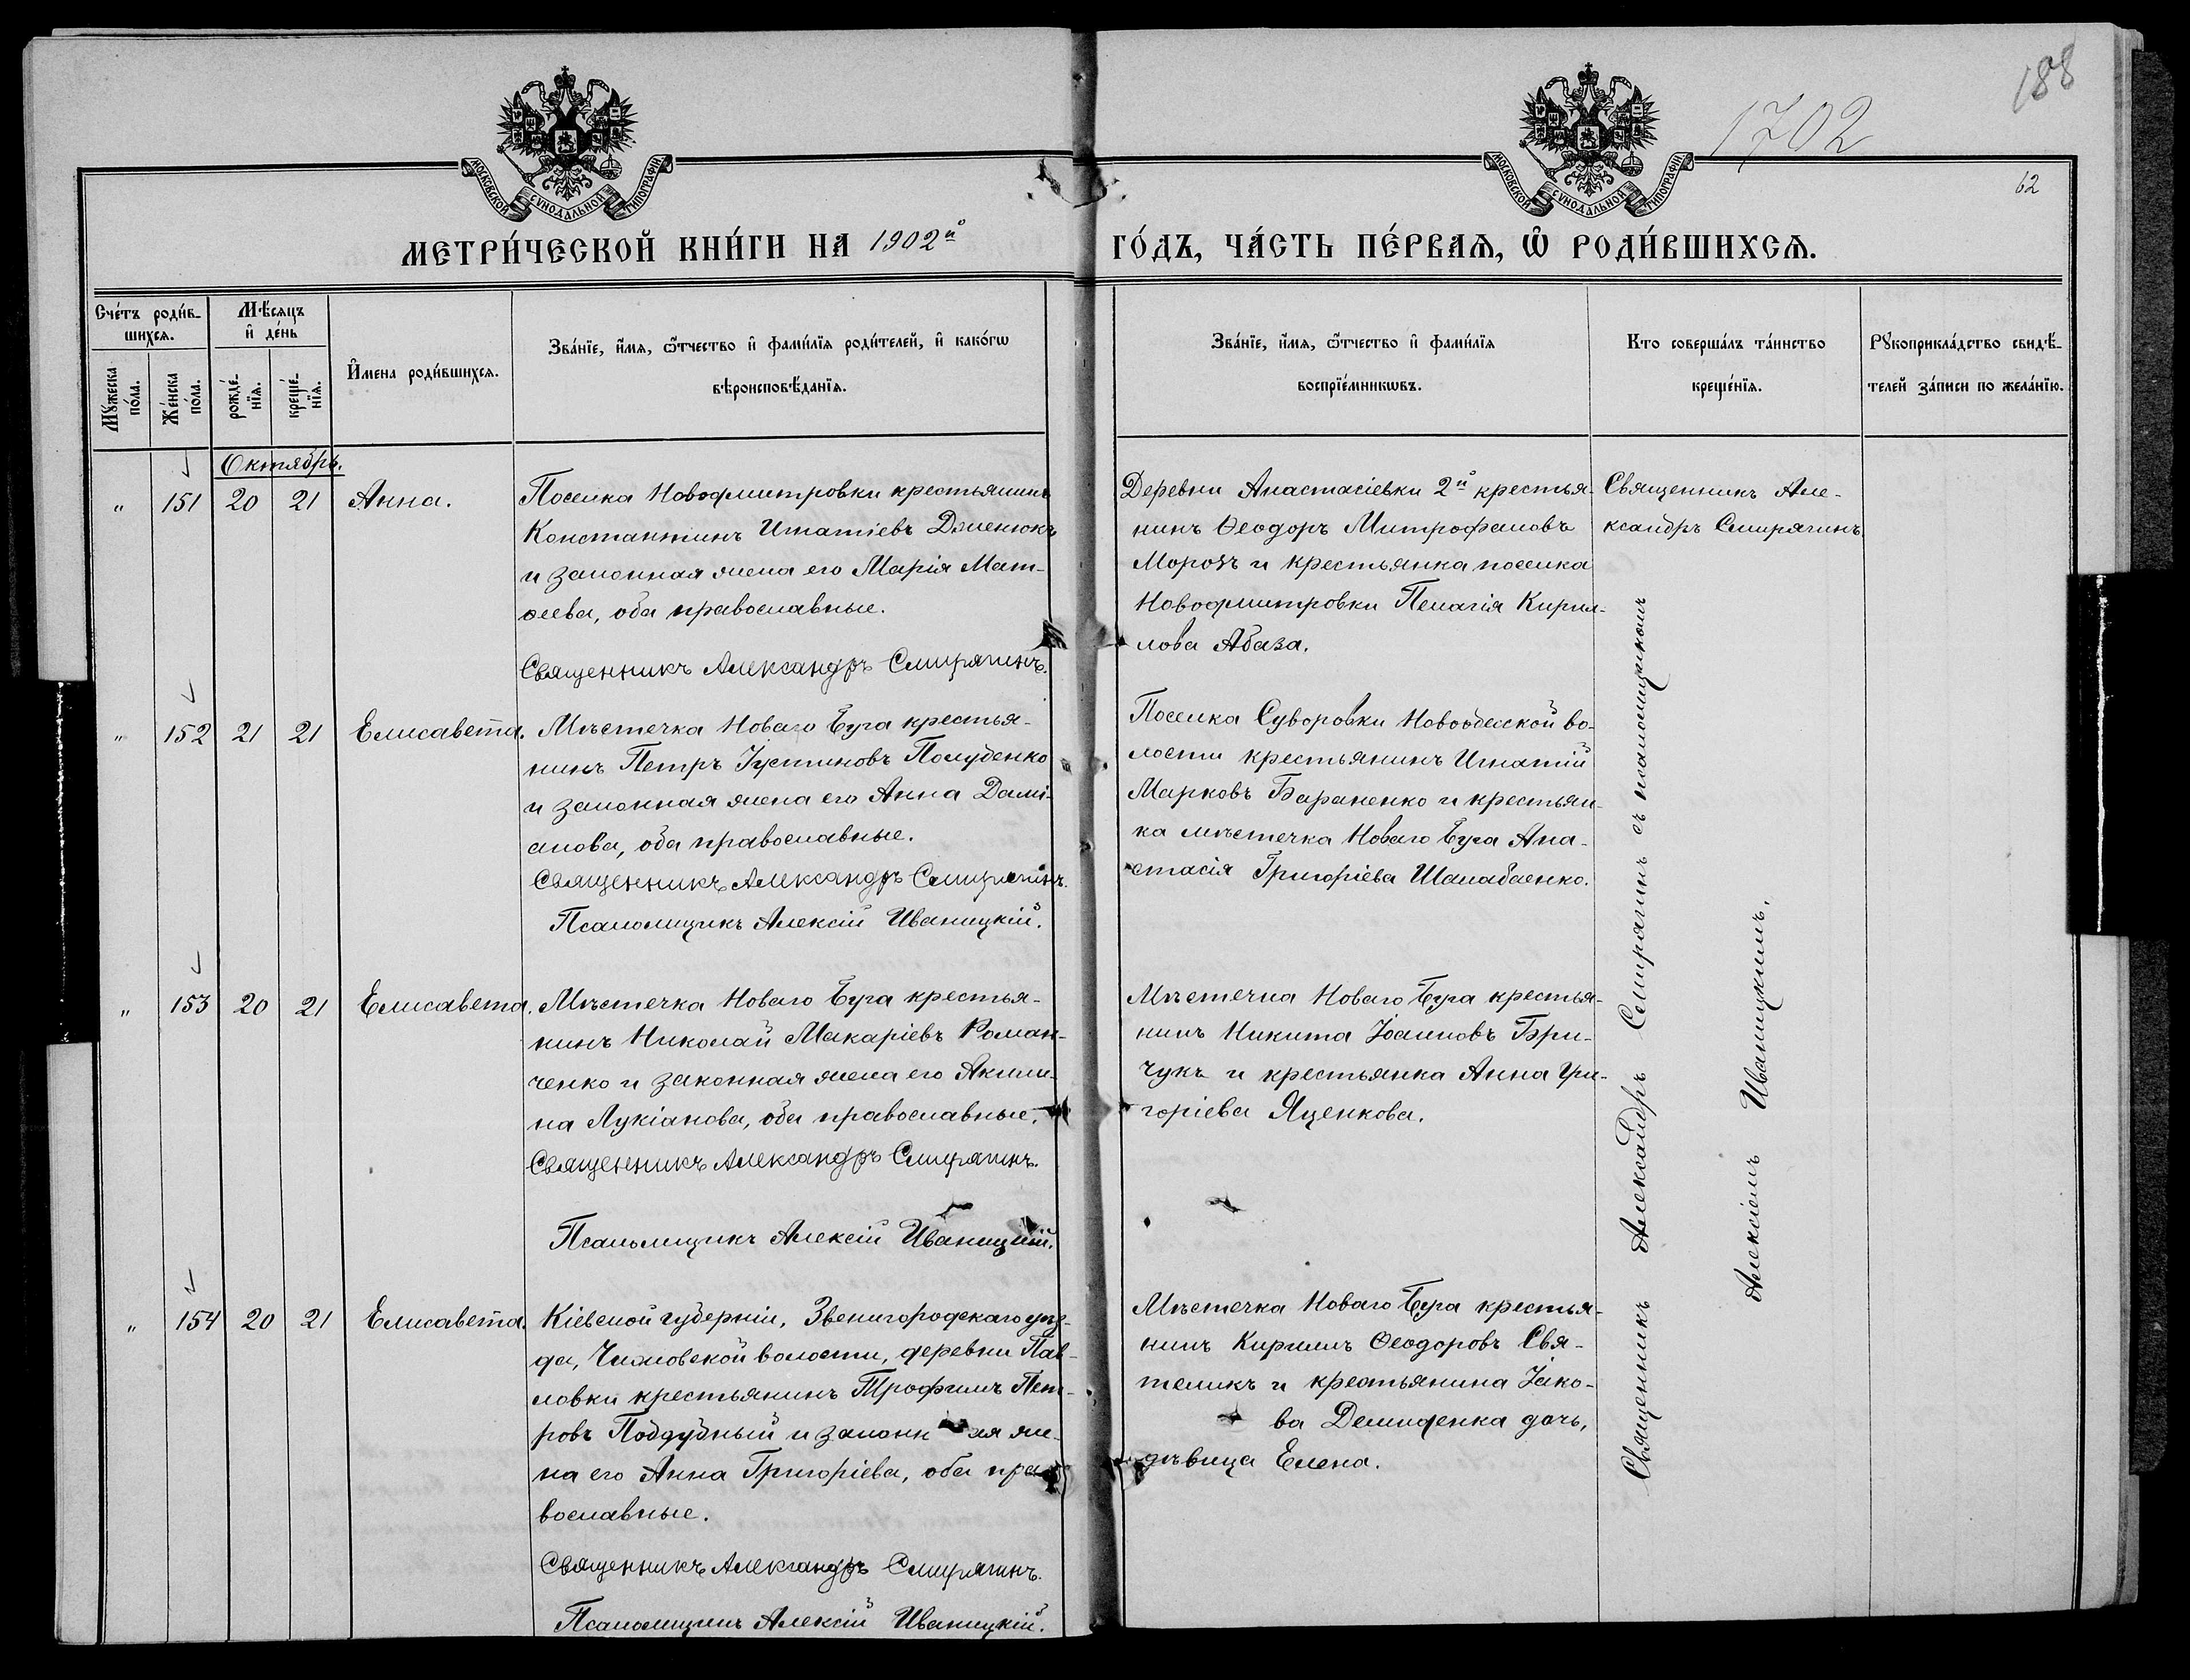 188
1702
62
МОСКОВСКОЙ СѴНОДАЛЬНОЙ ТИПОГРАФІИ
МОСКОВСКОЙ СѴНОДАЛЬНОЙ ТИПОГРАФІИ
МЕТРИ́ЧЕСКОЙ КНИ́ГИ НА 1902й ГО́ДЪ, ЧА́СТЬ ПЕ́РВАѦ, Ѡ҆ РОДИ́ВШИХСѦ.
Сче́тъ роди́в-
шихсѧ.
Мѹ́жеска по́ла.
Же́нска по́ла.
Мѣ́сѧцъ
и҆ де́нь
рожде́-
нїѧ.
креще́-
нїѧ.
И҆мена роди́вшихсѧ.
Зва́нїе, и҆́мѧ, ѻ҆́тчество и҆ фами́лїѧ роди́телей, и҆ како́гѡ
вѣроисповѣ́данїѧ.
Зва́нїе, и҆́мѧ, ѻ҆́тчество и҆ фами́лїѧ
воспрїе́мникѡвъ.
Кто соверша́лъ та́инство
креще́нїѧ.
Рꙋкоприкла́дство свидѣ́-
телей за́писи по жела́нїю.
Октябрь.
" 151 20 21 Анна.
Поселка Новодмитровки крестьянинъ
Константинъ Игнатіевъ
и законная жена его Марія Мат-
ѳеева, оба православные.
Священникъ Александръ Смирягинъ.
Деревни Анастасіевки 2й крестья-
нинъ Ѳеодоръ Митрофановъ
Морозъ и крестьянка поселка
Новодмитровки Пелагія Кирил-
лова Абаза.
Священникъ Але-
ксандръ Смирягинъ
" 152 21 21 Елисавета.
Мѣстечка Новаго Буга крестья-
нинъ Петръ Іустиновъ Полубенко
и законная жена его Анна Дамі-
анова, оба православные.
Священникъ Александръ Смирягинъ.
Псаломщикъ Алексій Иваницкій.
Поселка Суворовки Новоодесской во-
лости крестьянинъ Игнатій
Марковъ Бараненко и крестьян-
ка мѣстечка Новаго Буга Ана-
стасія Григоріева Шалабаенко.
" 153 20 21 Елисавета.
Мѣстечка Новаго Буга крестья-
нинъ Николай Макаріевъ Роман-
ченко и законная жена его Акили-
на Лукіанова, оба православные.
Священникъ Александръ Смирягинъ.
Псаломщикъ Алексій Иваницкій.
Мѣстечка Новаго Буга крестья-
нинъ Никита Іоанновъ Бри-
чукъ и крестьянка Анна Гри-
горіева Яценкова.
" 154 20 21 Елисавета.
Кіевской губерніи, Звенигородскаго уѣз-
да, волости, деревни Пав-
ловки крестьянинъ Трофимъ Пет-
ровъ Поддубный и законная же-
на его Анна Григоріева, оба пра-
вославные.
Священникъ Александръ Смирягинъ.
Псаломщикъ Алексій Иваницкій.
Мѣстечка Новаго Буга крестья-
нинъ Кириллъ Ѳеодоровъ Свя-
теликъ и крестьянина Іако-
ва Демиденка дочь,
дѣвица Елена.
Священникъ Александръ Смирягинъ съ псаломщикомъ
Алексіемъ Иваницкимъ.